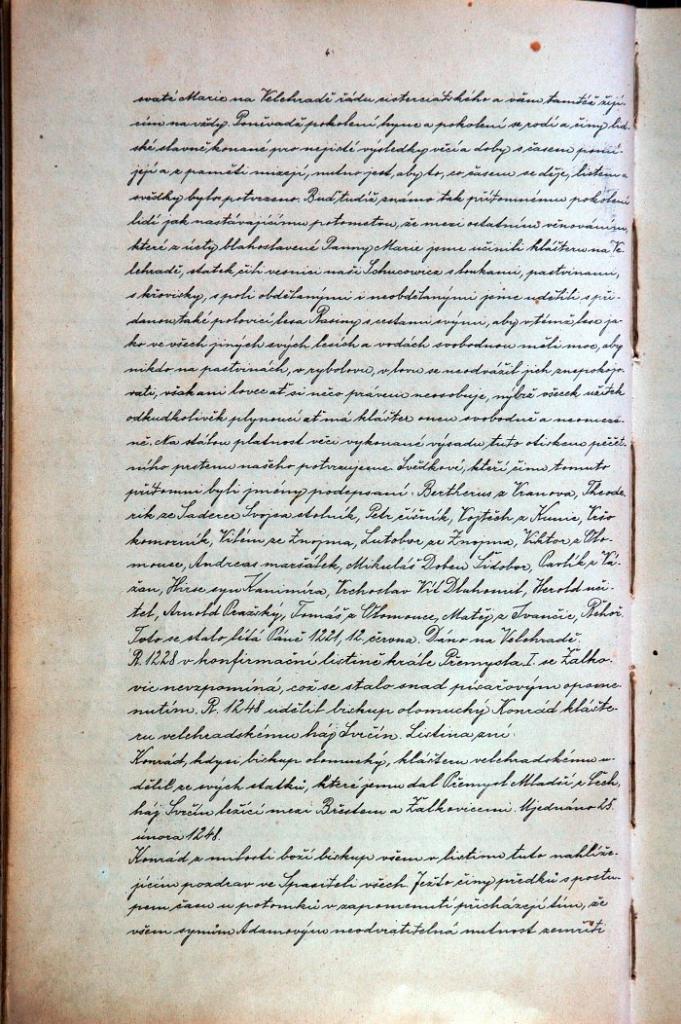 4
svaté Marie na Velehradě řádu cisterciatského a vám tamtéž žijí-
cím na vždy. Poněvadž pokolení hyne a pokolení se rodí a činy lid-
ské slavně konané pro nejidé výsledky věcí a doby s časem pomí-
její a z paměti mizejí, nutno jest, aby to, co časem se děje, listem a
svědky bylo potvrzeno. Buď tudíž známo tak přítomnému pokolení
lidí jak nastávajícímu potomstvu, že mezi ostatním věnováním,
které z úcty blahoslavené Panny Marie jsme učinili klášteru na Ve-
lehradě, statek čili vesnici naši Schucowice s loukami, pastvinami,
s křovisky, s poli obdělanými i neobdělanými jsme udělili s při-
danou také polovicí lesa Rasiny s cestami svými, aby v témž lese ja-
ko ve všech jiných svých lesích a vodách svobodnou měli moc, aby
nikdo na pastvinách, v rybolovu, v lovu se neodvážil jich znepokojo-
vati, však ani lovec ať si něco právem neosobuje, nýbrž všecek užitek
odkudkolivěk plynoucí ať má klášter onen svobodně a neomeze-
ně. Na stálou platnost věci vykonané výsadu tuto otiskem pečet-
ního prstenu našeho potvrzujeme. Svědkové, kteří činu tomuto
přítomni byli jmény podepsaní: Bertherius z Vranova, Theode-
rik ze Saderce Svojsa stolník, Petr číšník, Vojtěch z Kunic, Vršo
komorník, Vilém ze Znojma, Lutobor ze Znojma, Viktor z Olo-
mouce, Andreas maršálek, Mikuláš Doben Sidobor, Pavlík z Vá-
žan, Hirse syn Kanimíra, Vrchoslav Vít Dluhomil, Herold uči-
tel, Arnold Pražský, Tomáš z Olomouce, Matěj z Ivančic, Řehoř.
Toto se stalo léta Páně 1221, 12. června. Dáno na Velehradě.
R. 1228 v konfirmační listině krále Přemysla I. se Žalko-
vic nevzpomíná, což se stalo snad písařovým opome-
nutím. R. 1248 udělil biskup olomucký Konrád klášte-
ru velehradskému háj Svrčín. Listina zní:
Konrád, kdysi biskup olomucký, klášteru velehradskému u-
dělil ze svých statků, které jemu dal Přemysl Mladší z Čech,
háj Svrčín ležící mezi Břestem a Žalkovicemi. Ujednáno 25.
února 1248.
Konrád z milosti boží biskup všem v listinu tuto nahlíže-
jícím pozdrav ve Spasiteli všech. Ježto činy předků s postu-
pem času u potomků v zapomenutí přicházejí tím, že
všem synům Adamovým neodvratitelná nutnost zemříti